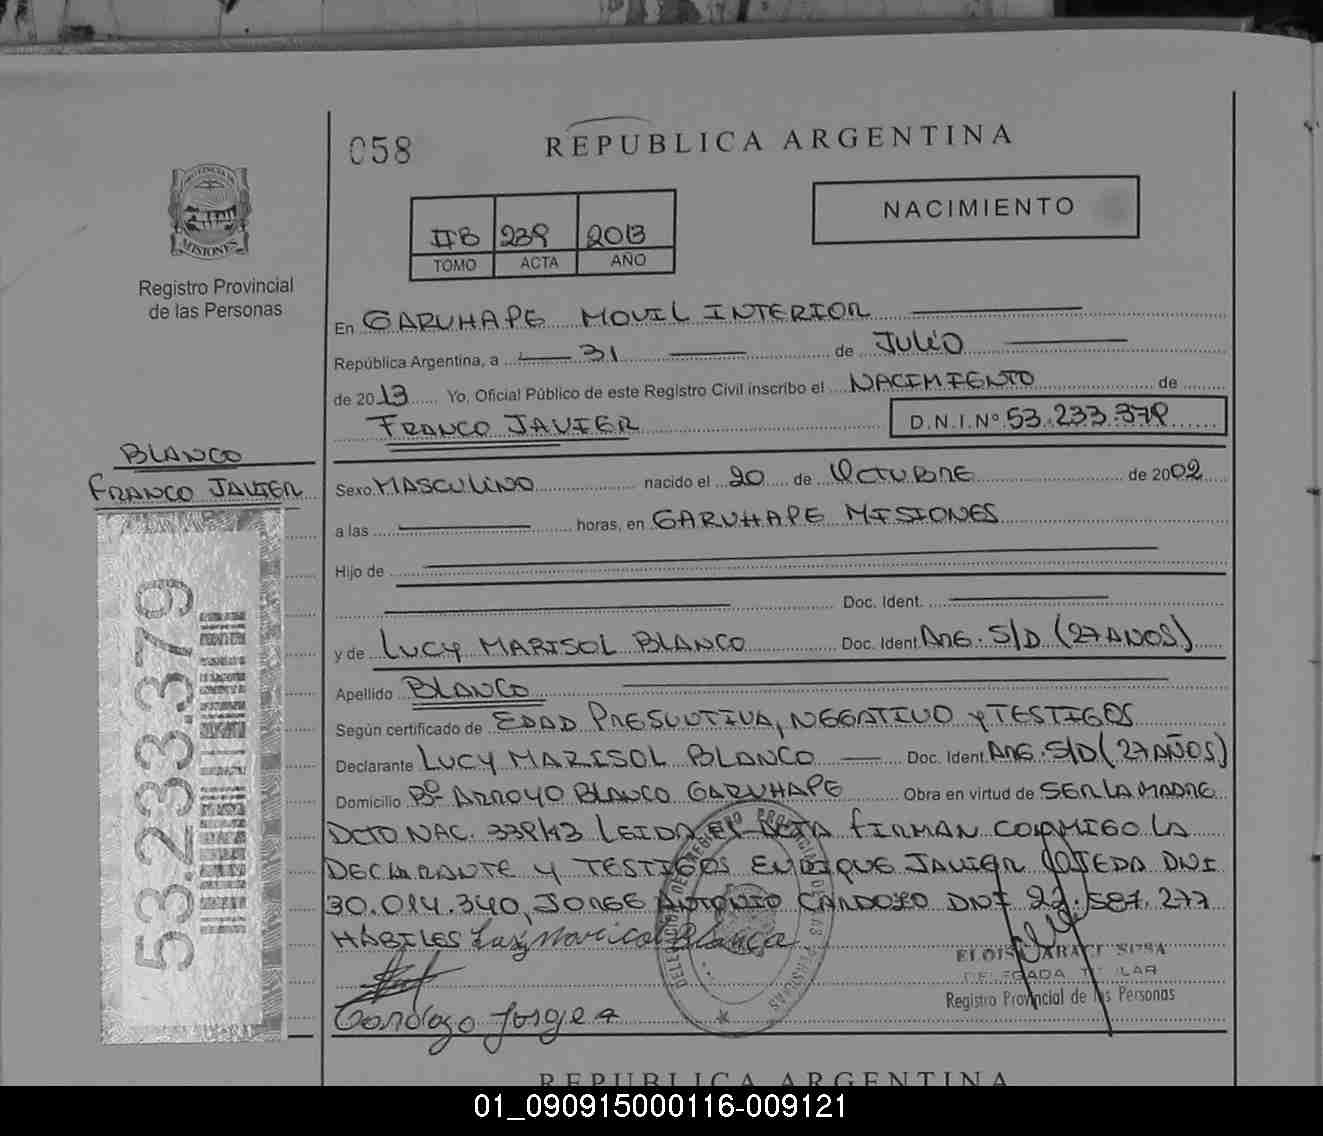 058
REPUBLICA ARGENTINA
PROVINCIA DE
MISIONES
Registro Provincial
de las Personas
IIB 239 2013
TOMO ACTA AÑO
NACIMIENTO
En GARUHAPE MOVIL INTERIOR
República Argentina, a 31 de JULIO
de 2013 Yo, Oficial Público de este Registro Civil inscribo el NACIMIENTO de
FRANCO JAVIER D.N.I.Nº 53.233.379
BLANCO
FRANCO JAVIER
53.233.379
Sexo MASCULINO nacido el 20 de OCTUBRE de 2002
a las horas, en GARUHAPE MISIONES
Hijo de
Doc. Ident.
y de LUCY MARISOL BLANCO Doc. Ident. ARG. S/D (27 ANOS)
Apellido BLANCO
Según certificado de EDAD PRESUNTIVA, NEGATIVO y TESTIGOS
Declarante LUCY MARISOL BLANCO Doc. Ident. ARG. S/D (27 AÑOS)
Domicilio Bº ARROYO BLANCO GARUHAPE Obra en virtud de SER LA MADRE
DCTO NAC. 339/13 LEIDA EL ACTA FIRMAN CONMIGO LA
DECLARANTE Y TESTIGOS ENRIQUE JAVIER OJEDA DNI
30.014.340, JORGE ANTONIO CARDOZO DNI 22.587.277
HABILES
Registro Provincial de las Personas
Cardozo Jorge A
REPUBLICA ARGENTINA
01_090915000116-009121